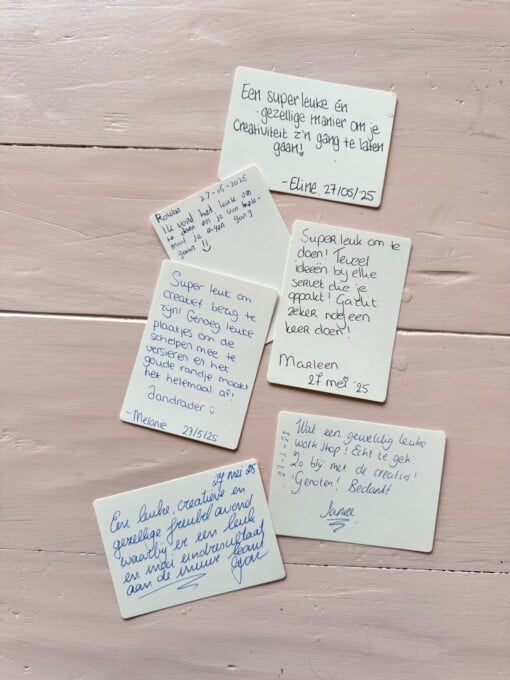 Een superleuke én
gezellige manier om je
creativiteit z'n gang te laten
gaan!
-Eline 27/05/'25
27-05-2025
Ik vond het leuk om
te doen en je kan hele-
maal je eigen gang
gaan
Super leuk om te
doen! Teveel
ideeën bij elke
servet die je
oppakt! Ga dit
zeker nog een
keer doen!
Marleen
27 mei '25
Super leuk om
creatief bezig te
zijn! Genoeg leuke
plaatjes om de
schelpen mee te
versieren en het
goude randje maakt
het helemaal af!
Aandrader
-Melanie 27/5/25
Wat een geweldig leuke
workshop! Echt te gek.
Zo blij met de creaties!
Genoten! Bedankt
27-5-25
27 mei 25
Een leuke, creatieve en
gezellige freubel avond
waarbij er een leuk
en mooi eindresultaat
aan de muur